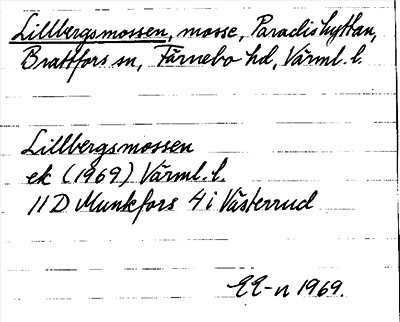 Lillbergsmossen, mosse, Paradishyttan,
Brattfors sn, Färnebo hd, Värml. l.
Lillbergsmossen
ek (1969) Värml. l.
11D Munkfors 4i Västerrud
EE-n 1969.